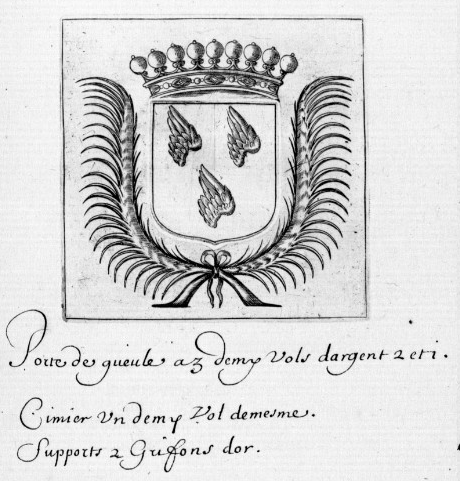 Porte de gueule a 3 demy Vols dargent 2 et 1.
Cimier Vn demy Vol demesme.
Supports 2 Grifons dor.